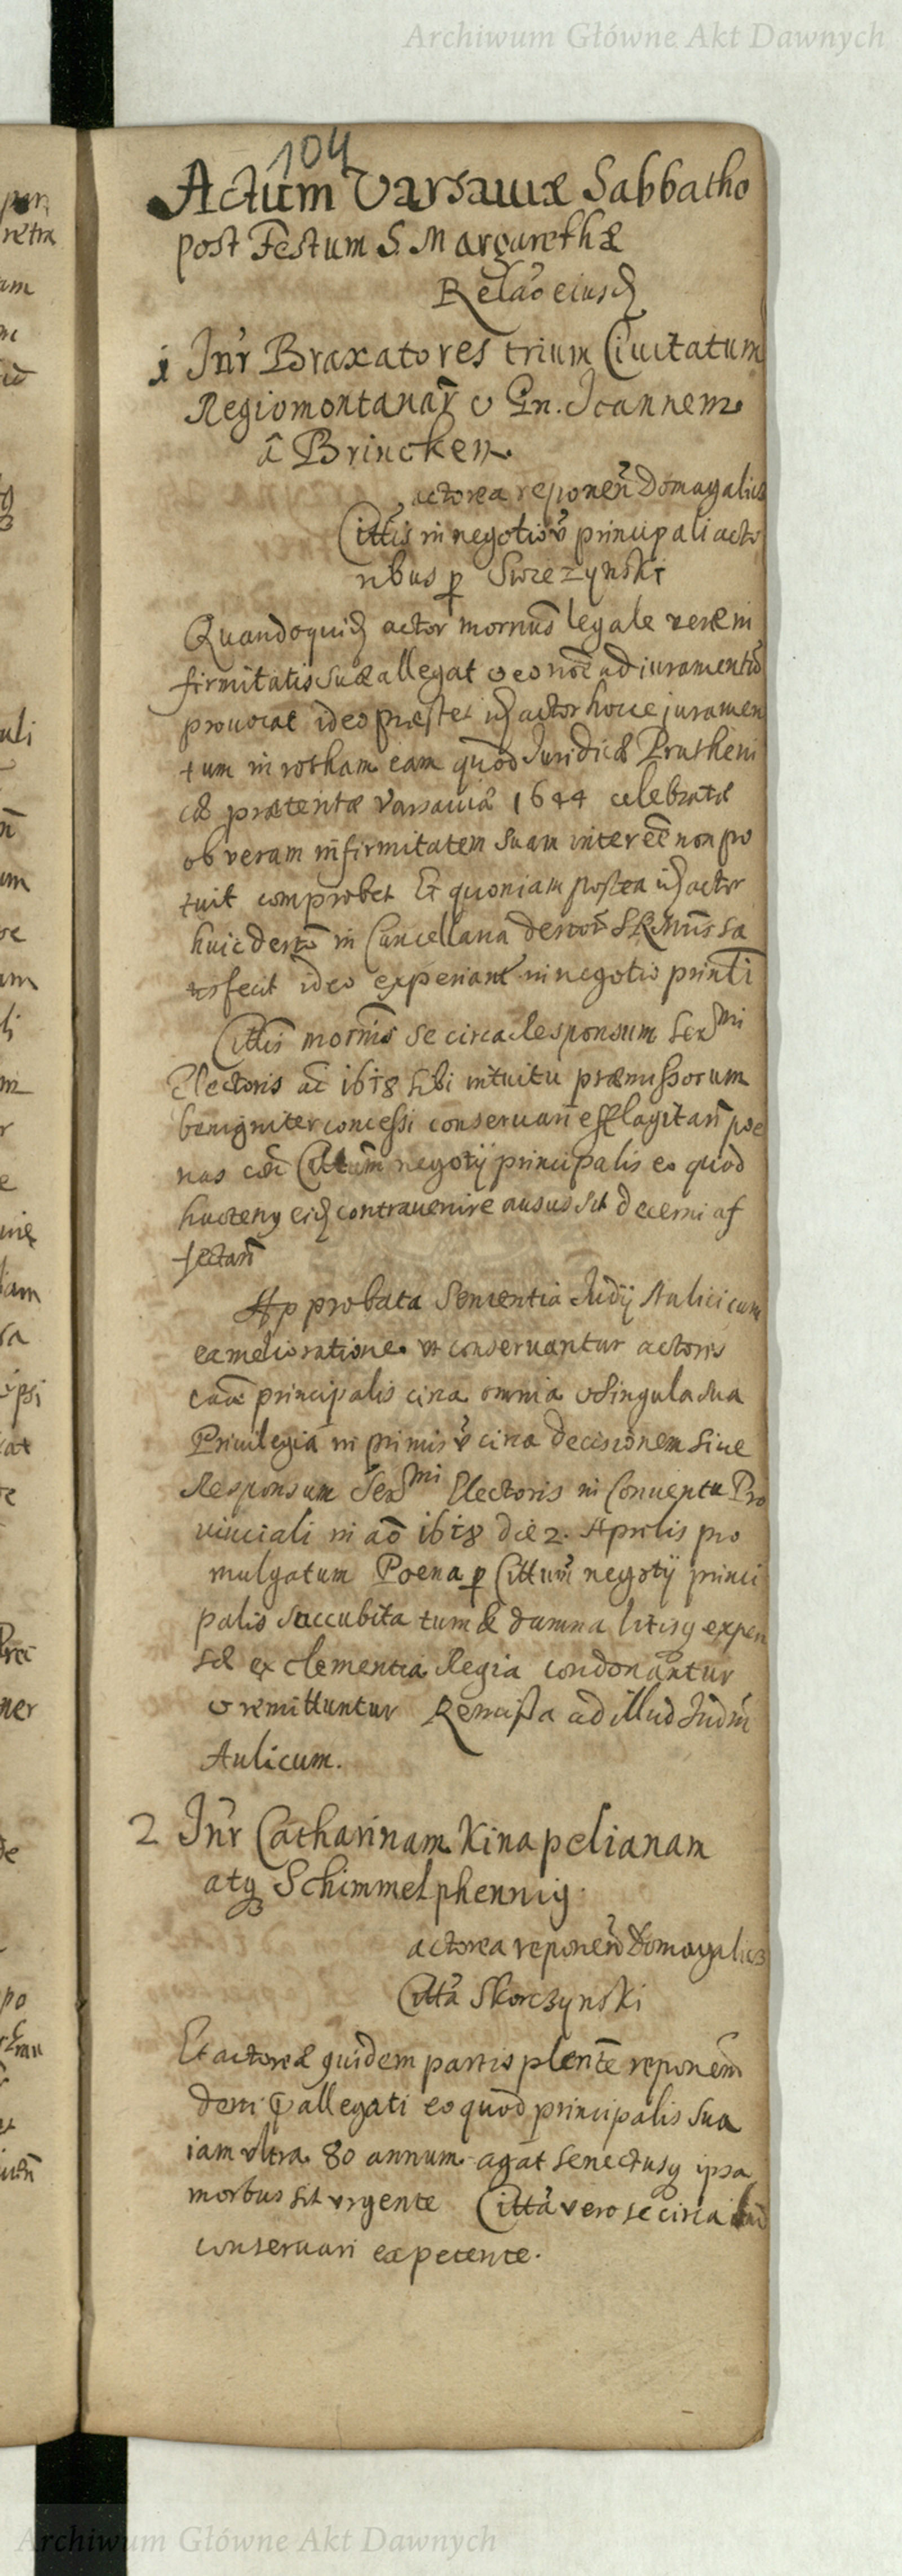 Archiwum Główne Akt Dawnych
104
Actum Varsaviæ Sabbatho
post Festum S. Margarethæ
Relao eiusd
1 Inr Braxatores trium Civitatum
Regiomontanar & Gn. Joannem
â Brincken.
actorea reponen Domagalius
Cittis in negotio principali acto
ribus p Swiezynski
Quandoquid actor mornus legale veræ in
firmitatis suæ allegat & eo noe ad iuramentu
provocat ideo præstet id actor hocce juramen
tum in rotham eam quod Juridicæ Prutheni
cæ prætentæ Varsaviæ 1644 celebratæ
ob veram infirmitatem suam interee non po
tuit comprobet Et quoniam postea id actor
huic in Cancellaria SRMtis sa
tisfecit ideo experiant in negotio printi
Cittis se circa Responsum Sermi
Electoris ao 1618 sibi intuitu præmissorum
benigniter concessi conservari efflagitan poe
nas con Cittum negotij principalis eo quod
hucteny eid contravenire ausus sit decerni af
fectan
Approbata Sententia Judij Aulici cum
ea melioratione ut conservantur actoris
principalis circa omnia & singula sua
Privilegia in primis circa decisionem sive
Responsum Sermi Electoris in Conventu Pro
vinciali in ao 1618 die 2. Aprilis pro
mulgatum Poena p Cittum negotij princi
palis succubita tum & damna litisq expen
sæ ex clementia Regia condonantur
& remittuntur Remissa ad illud Judm
Aulicum.
2 Inr Catharinam Kinapelianam
atq Schimmelphennig.
actorea reponen Domagalius
Citta Skorczynski
Et actoreæ quidem partis plente reponem
allegati eo quod principalis sua
iam ultra 80 annum agat senectusq ipsa
morbus sit urgente Citta vero se circa
conservari expetente.
Archiwum Główne Akt Dawnych